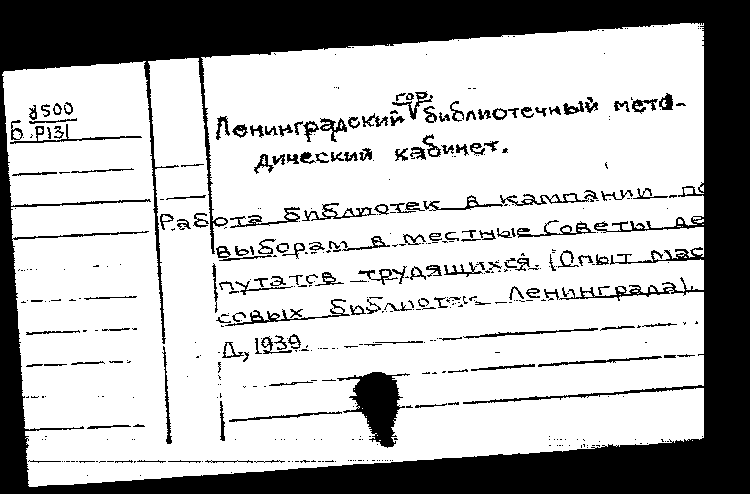 8500
Б.Р131
гор.
Ленинградский V библиотечный мето-
дический кабинет.
Работа библиотек в кампании по
выборам в местные Советы де
путатов трудящихся. (Опыт мас
совых библиотек Ленинграда).
Л., 1939.